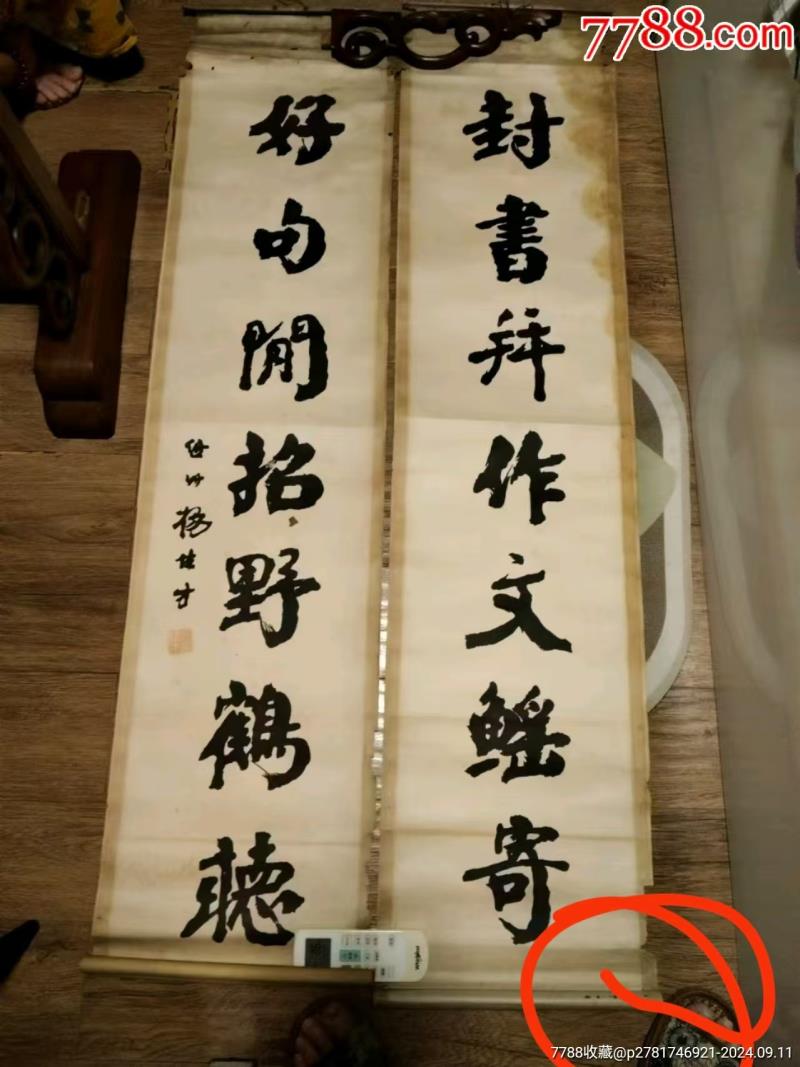 7788.com
封書拜作文鰩寄
好句閒招野鶴聽
7788收藏@p2781746921-2024.09.11